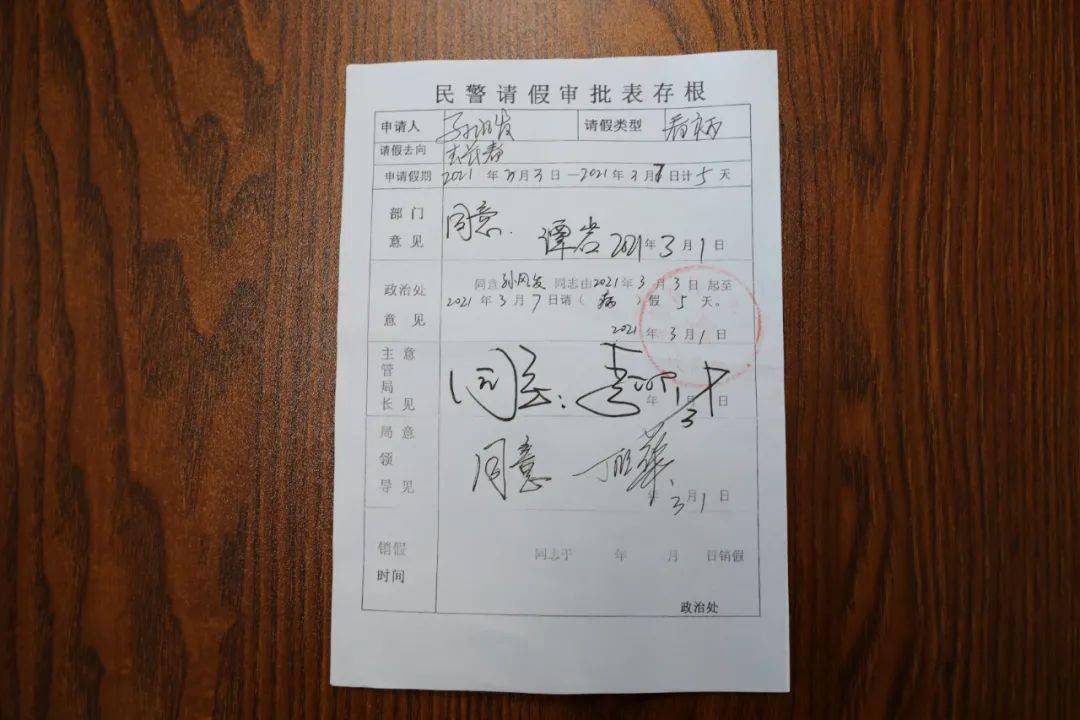 民警请假审批表存根
申请人 孙风发 请假类型 看病
请假去向
申请假期 2021年3月3日—2021年3月7日计5天
部门意见 同意. 谭岩 2021年3月1日
政治处意见 同意孙风发同志由2021年3月3日起至
2021年3月7日请(病)假5天。
2021年3月1日
主管局长意见 同意. 年月日
3/1
局领导意见 同意 年3月1日
销假时间 同志于 年 月 日销假
政治处